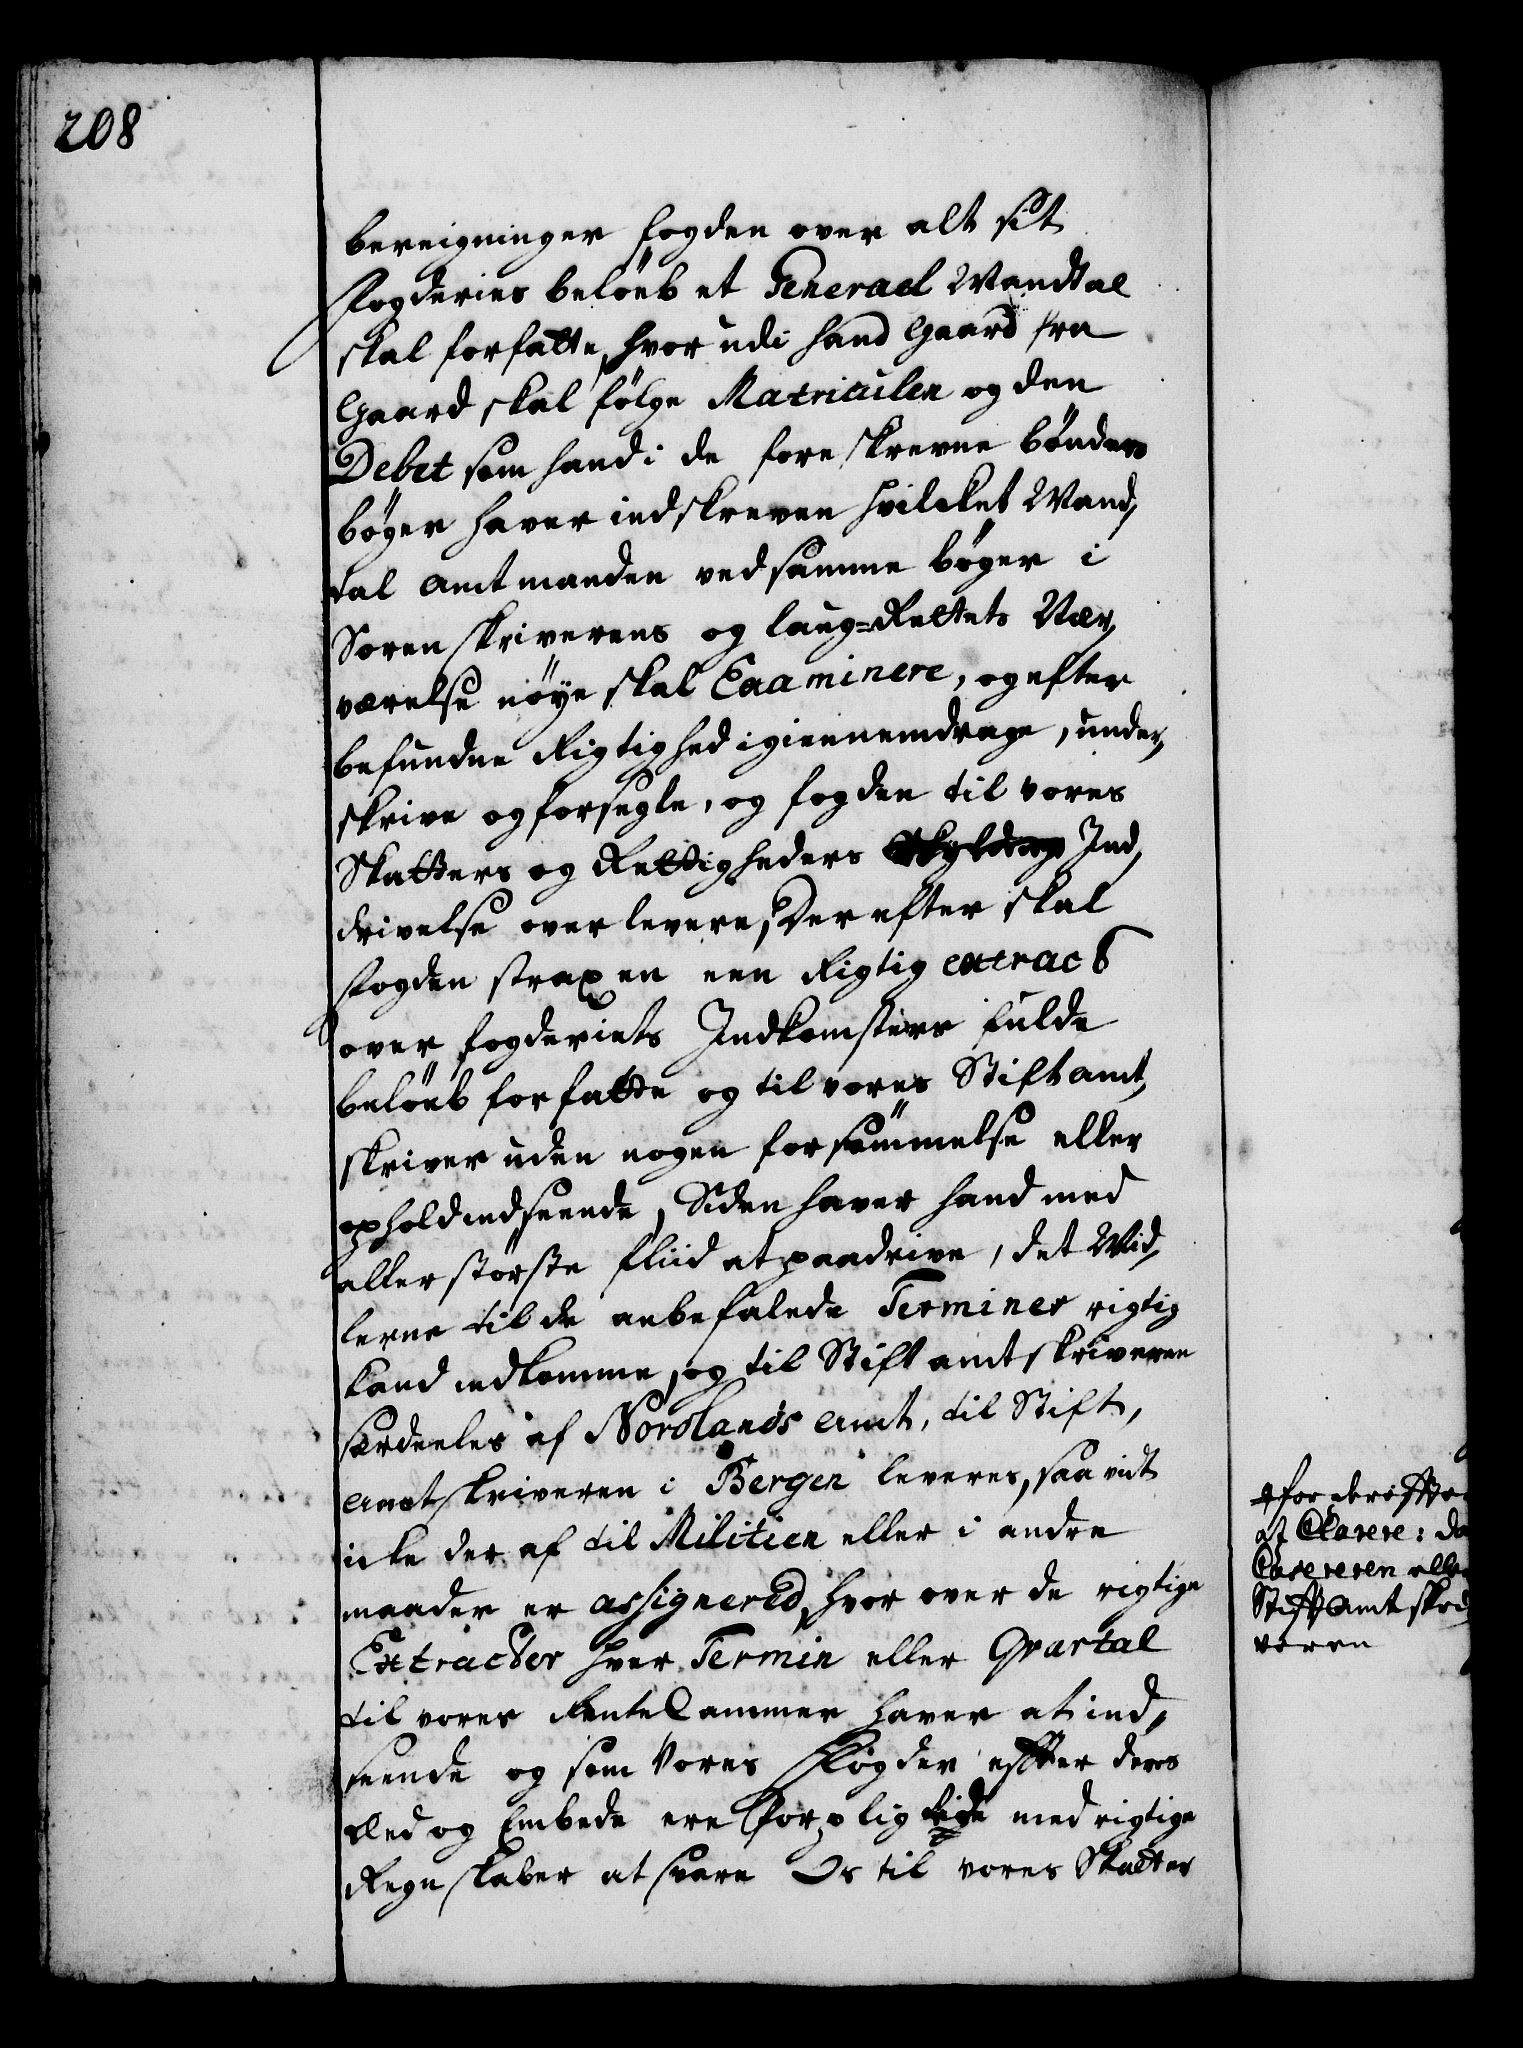 208
bereigninger fogden over alt sit
fogderies beløeb et General Mandtal
skal forfatte, hvor udi hand Gaard fra
Gaard skal følge Matriculen og den
Debet som hand i de foreskrevne bønders
bøger haver indskreven hvilcket Mand,
tal Amtmanden ved samme bøger i
Sorenskriverens og laug=Rettets Nær,
værelse nøye skal Examinere, og efter
befundne Rigtighed igiennemdrage, under,
skrive og forsegle, og fogden til vores
Skatters og Rettigheders Ind,
drivelse overlevere, Der efter skal
fogden straxen een Rigtig extract
over fogderiets Indkomsters fulde
beløeb forfatte og til vores Stiftamt,
skriver uden nogen forsømmelse eller
ophold indseende, Siden haver hand med
allerstørste fliid at paadrive, det Mid,
lerne til de anbefalede Terminer rigtig
kand indkomme, og til Stiftamtskriveren
særdeeles af Nordlands Amt, til Stift,
amtskriveren i Bergen leveres, saa vit
icke der af til Militien eller i andre
maader er assignered, hvor over de rigtige
Extracter hver Termin eller Qvartal
til vores RenteCammer haver at ind,
seende og som Vores fogder effter deres
Eed og Embede ere forpligtede med rigtige
Regnskaber at svare Os til vores Skatter
for
Casereren elle
Stifft Amt skri
veren